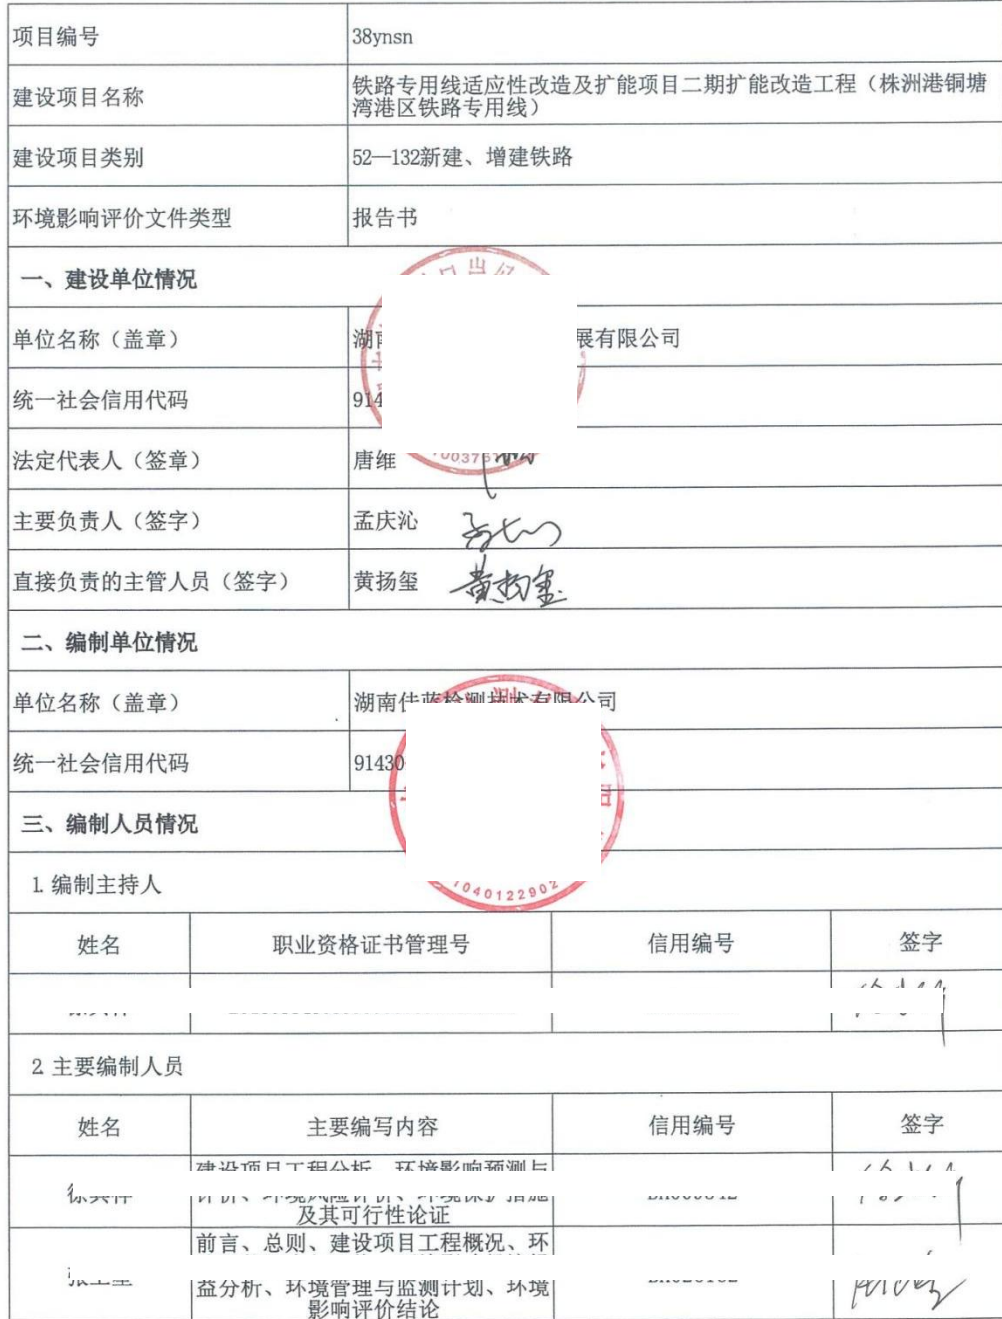 项目编号 38ynsn
建设项目名称 铁路专用线适应性改造及扩能项目二期扩能改造工程（株洲港铜塘
湾港区铁路专用线）
建设项目类别 52—132新建、增建铁路
环境影响评价文件类型 报告书
一、建设单位情况
单位名称（盖章） 湖南 展有限公司
统一社会信用代码 914
法定代表人（签章） 唐维
主要负责人（签字） 孟庆沁
直接负责的主管人员（签字） 黄扬玺 黄扬玺
二、编制单位情况
单位名称（盖章） 湖南佳蓝检测技术有限公司
统一社会信用代码 91430
三、编制人员情况
1040122902
1.编制主持人
姓名 职业资格证书管理号 信用编号 签字
2.主要编制人员
姓名 主要编写内容 信用编号 签字
建设项目工程分析、环境影响预测与
评价、环境风险评价、环境保护措施
及其可行性论证
前言、总则、建设项目工程概况、环
益分析、环境管理与监测计划、环境
影响评价结论